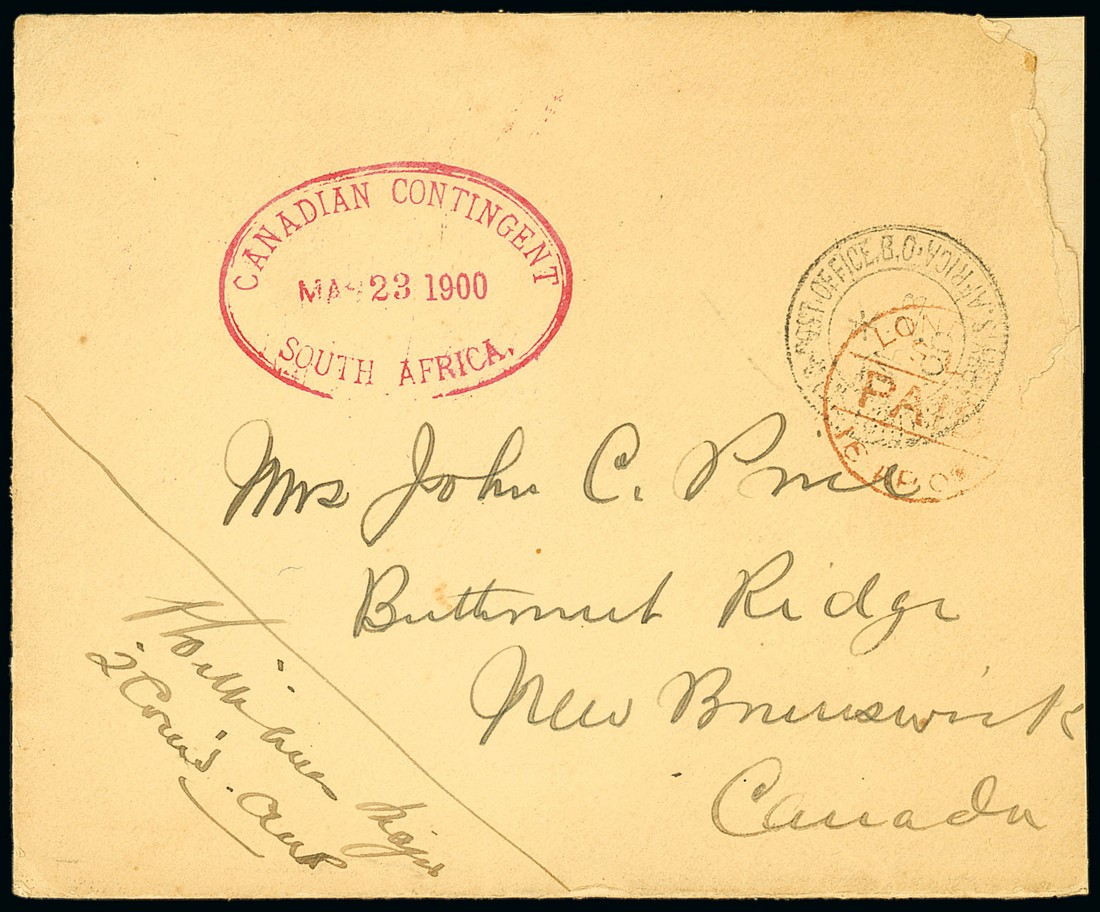 CANADIAN CONTINGENT
MAY 23 1900
SOUTH AFRICA.
POST OFFICE. B.O. S. AFRICA
LON
PAID
Mrs John C. Price
Butternut Ridge
New Brunswick
Canada
Major
2 Com'd.